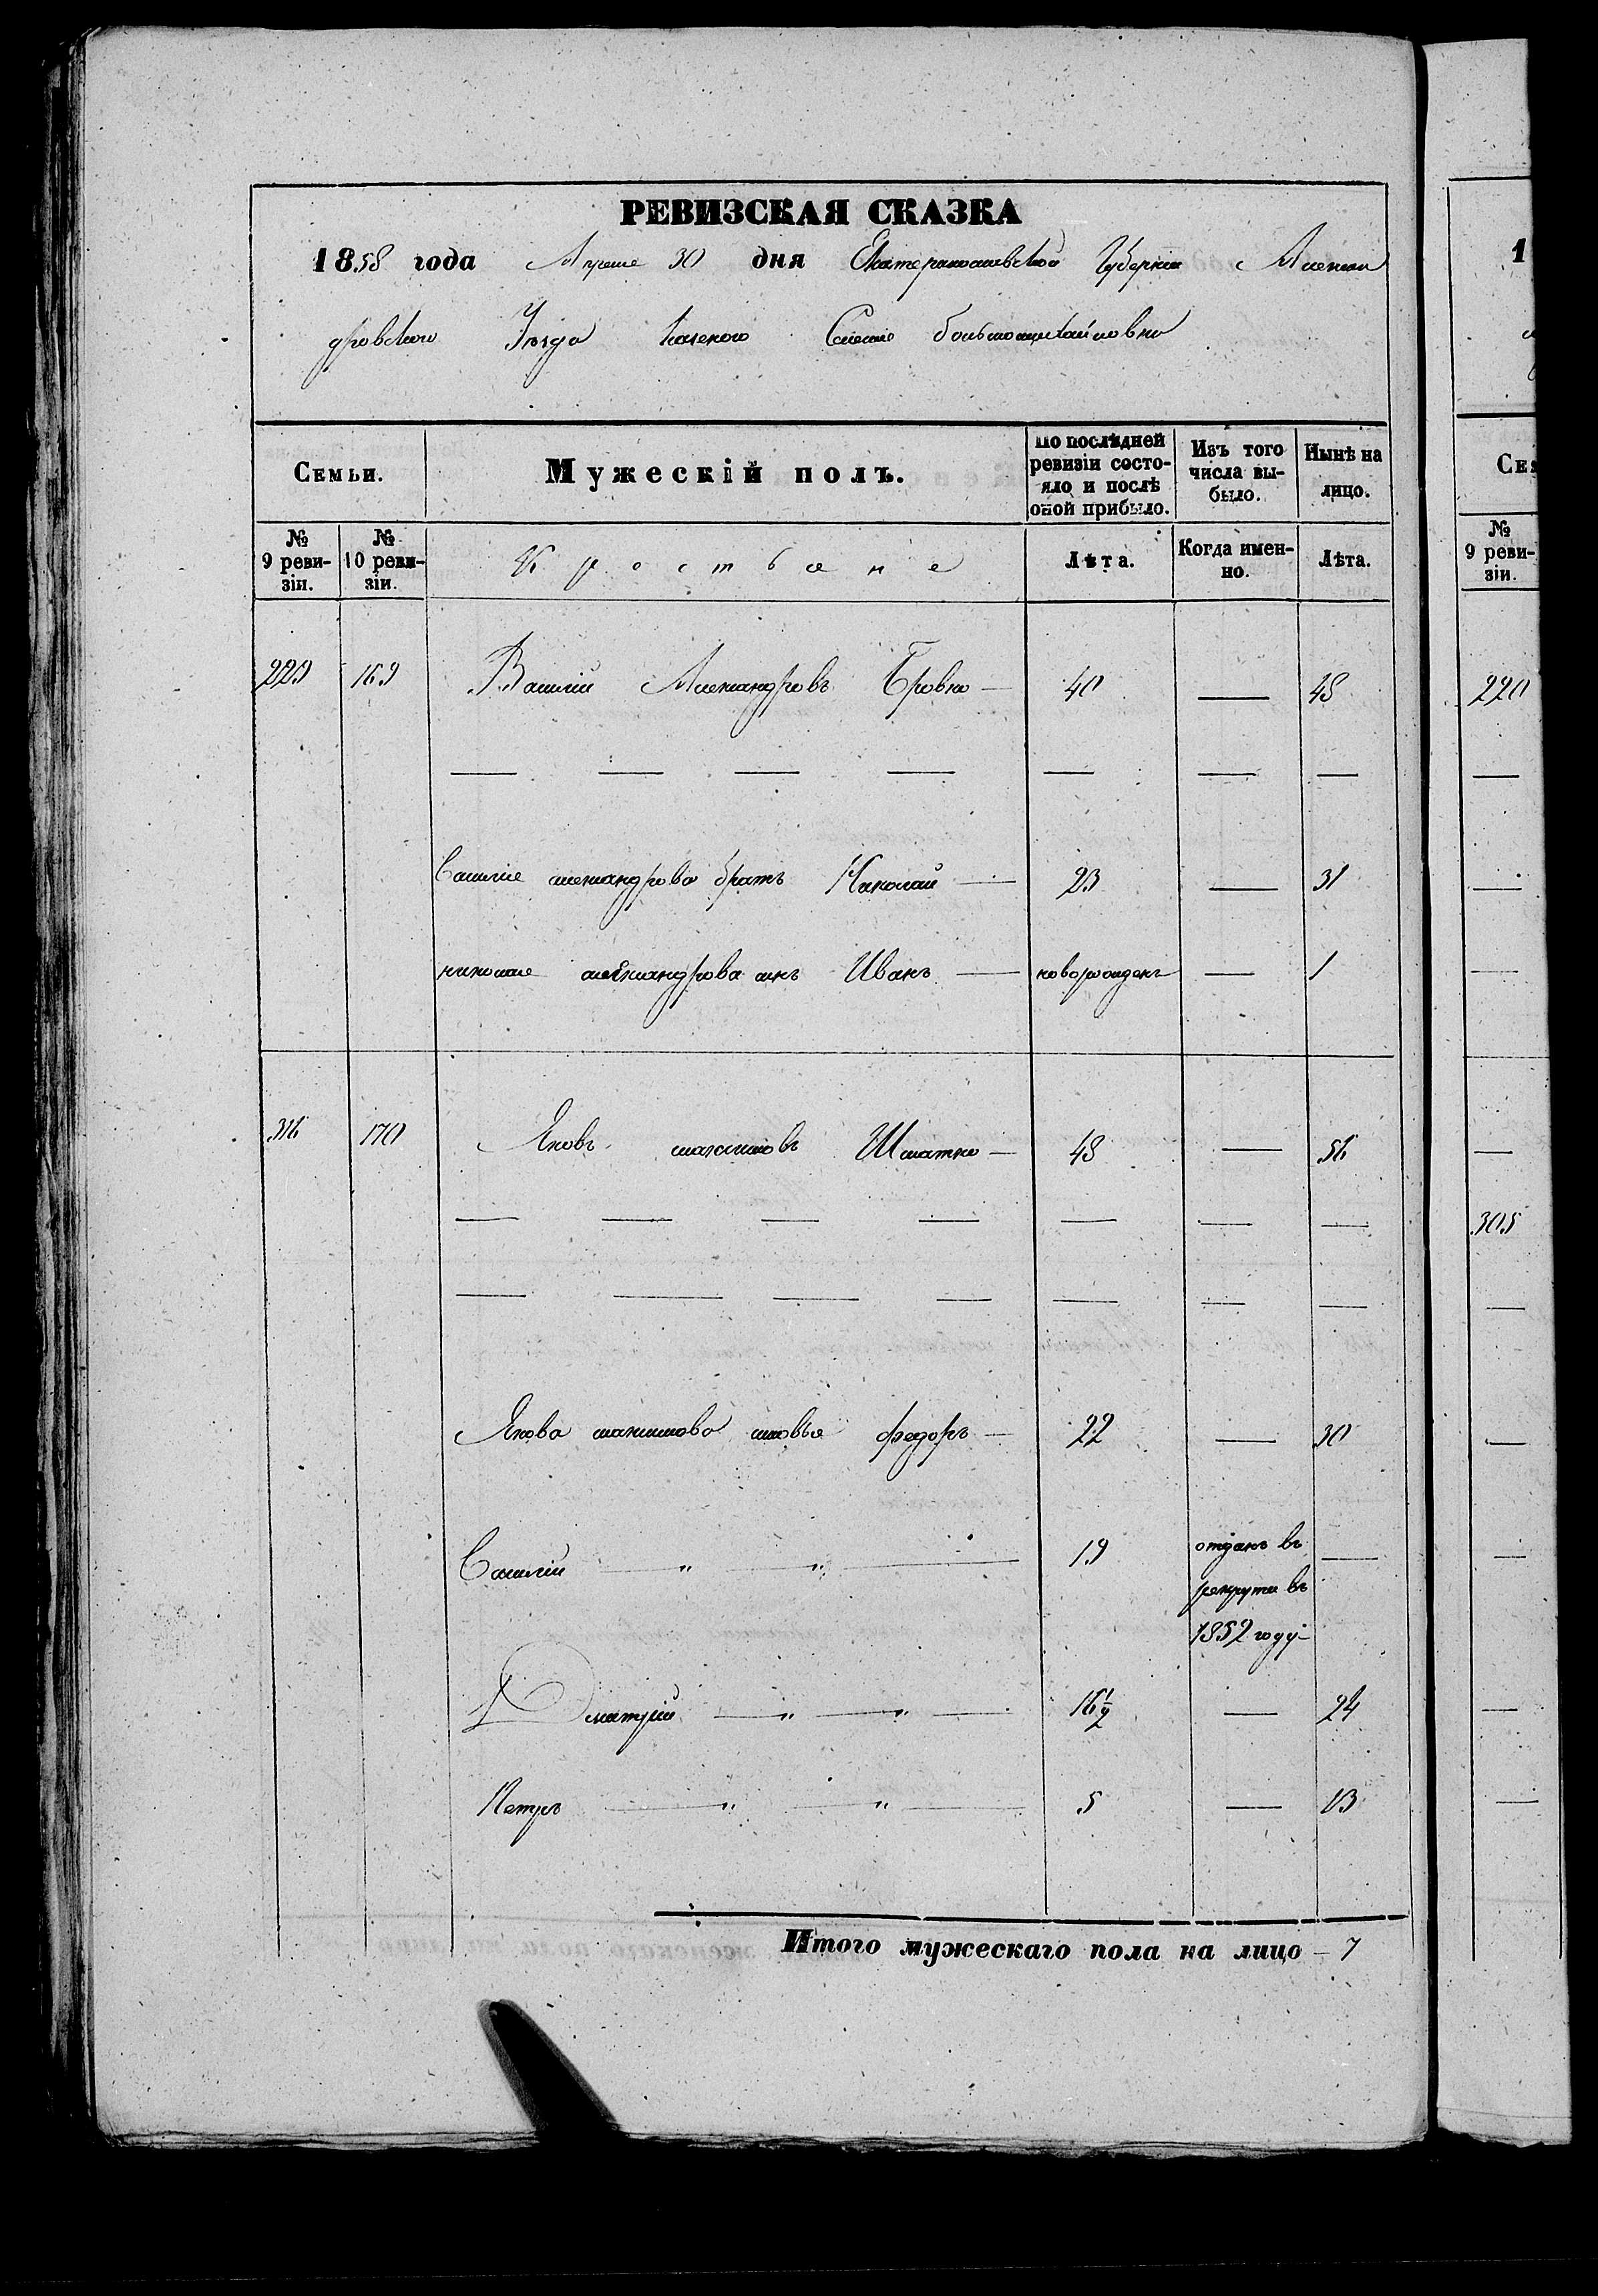 РЕВИЗСКАЯ СКАЗКА
1858 года Апреля 30 дня Екатеринославской Губернии Алексан
дровского Уезда Казеного Селение большомихайловки
Семьи.
Мужескій полъ.
По послѣдней ревизіи состояло и послѣ оной прибыло.
Изъ того числа выбыло.
Нынѣ на лицо.
№ 9 ревизіи.
№ 10 ревизіи.
Крестьяне
Лѣта.
Когда именно.
Лѣта.
229 169 Василий Александровъ Бровко — 40 — 48
Василие александрова братъ Николай — 23 — 31
николае александрова сынъ Иванъ — новорожденъ — 1
316 170 Яковъ максимовъ Шматко — 48 — 56
Якова максимова сыновья федоръ — 22 — 30
Василий — " — " — 19 отданъ въ —
рекруты въ
1852 году
Дмитрий — " — " — 16½ — 24
Петръ — " — " — 5 — 13
Итого мужескаго пола на лицо — 7
1
Сем
№ 9 ревизіи.
220
305